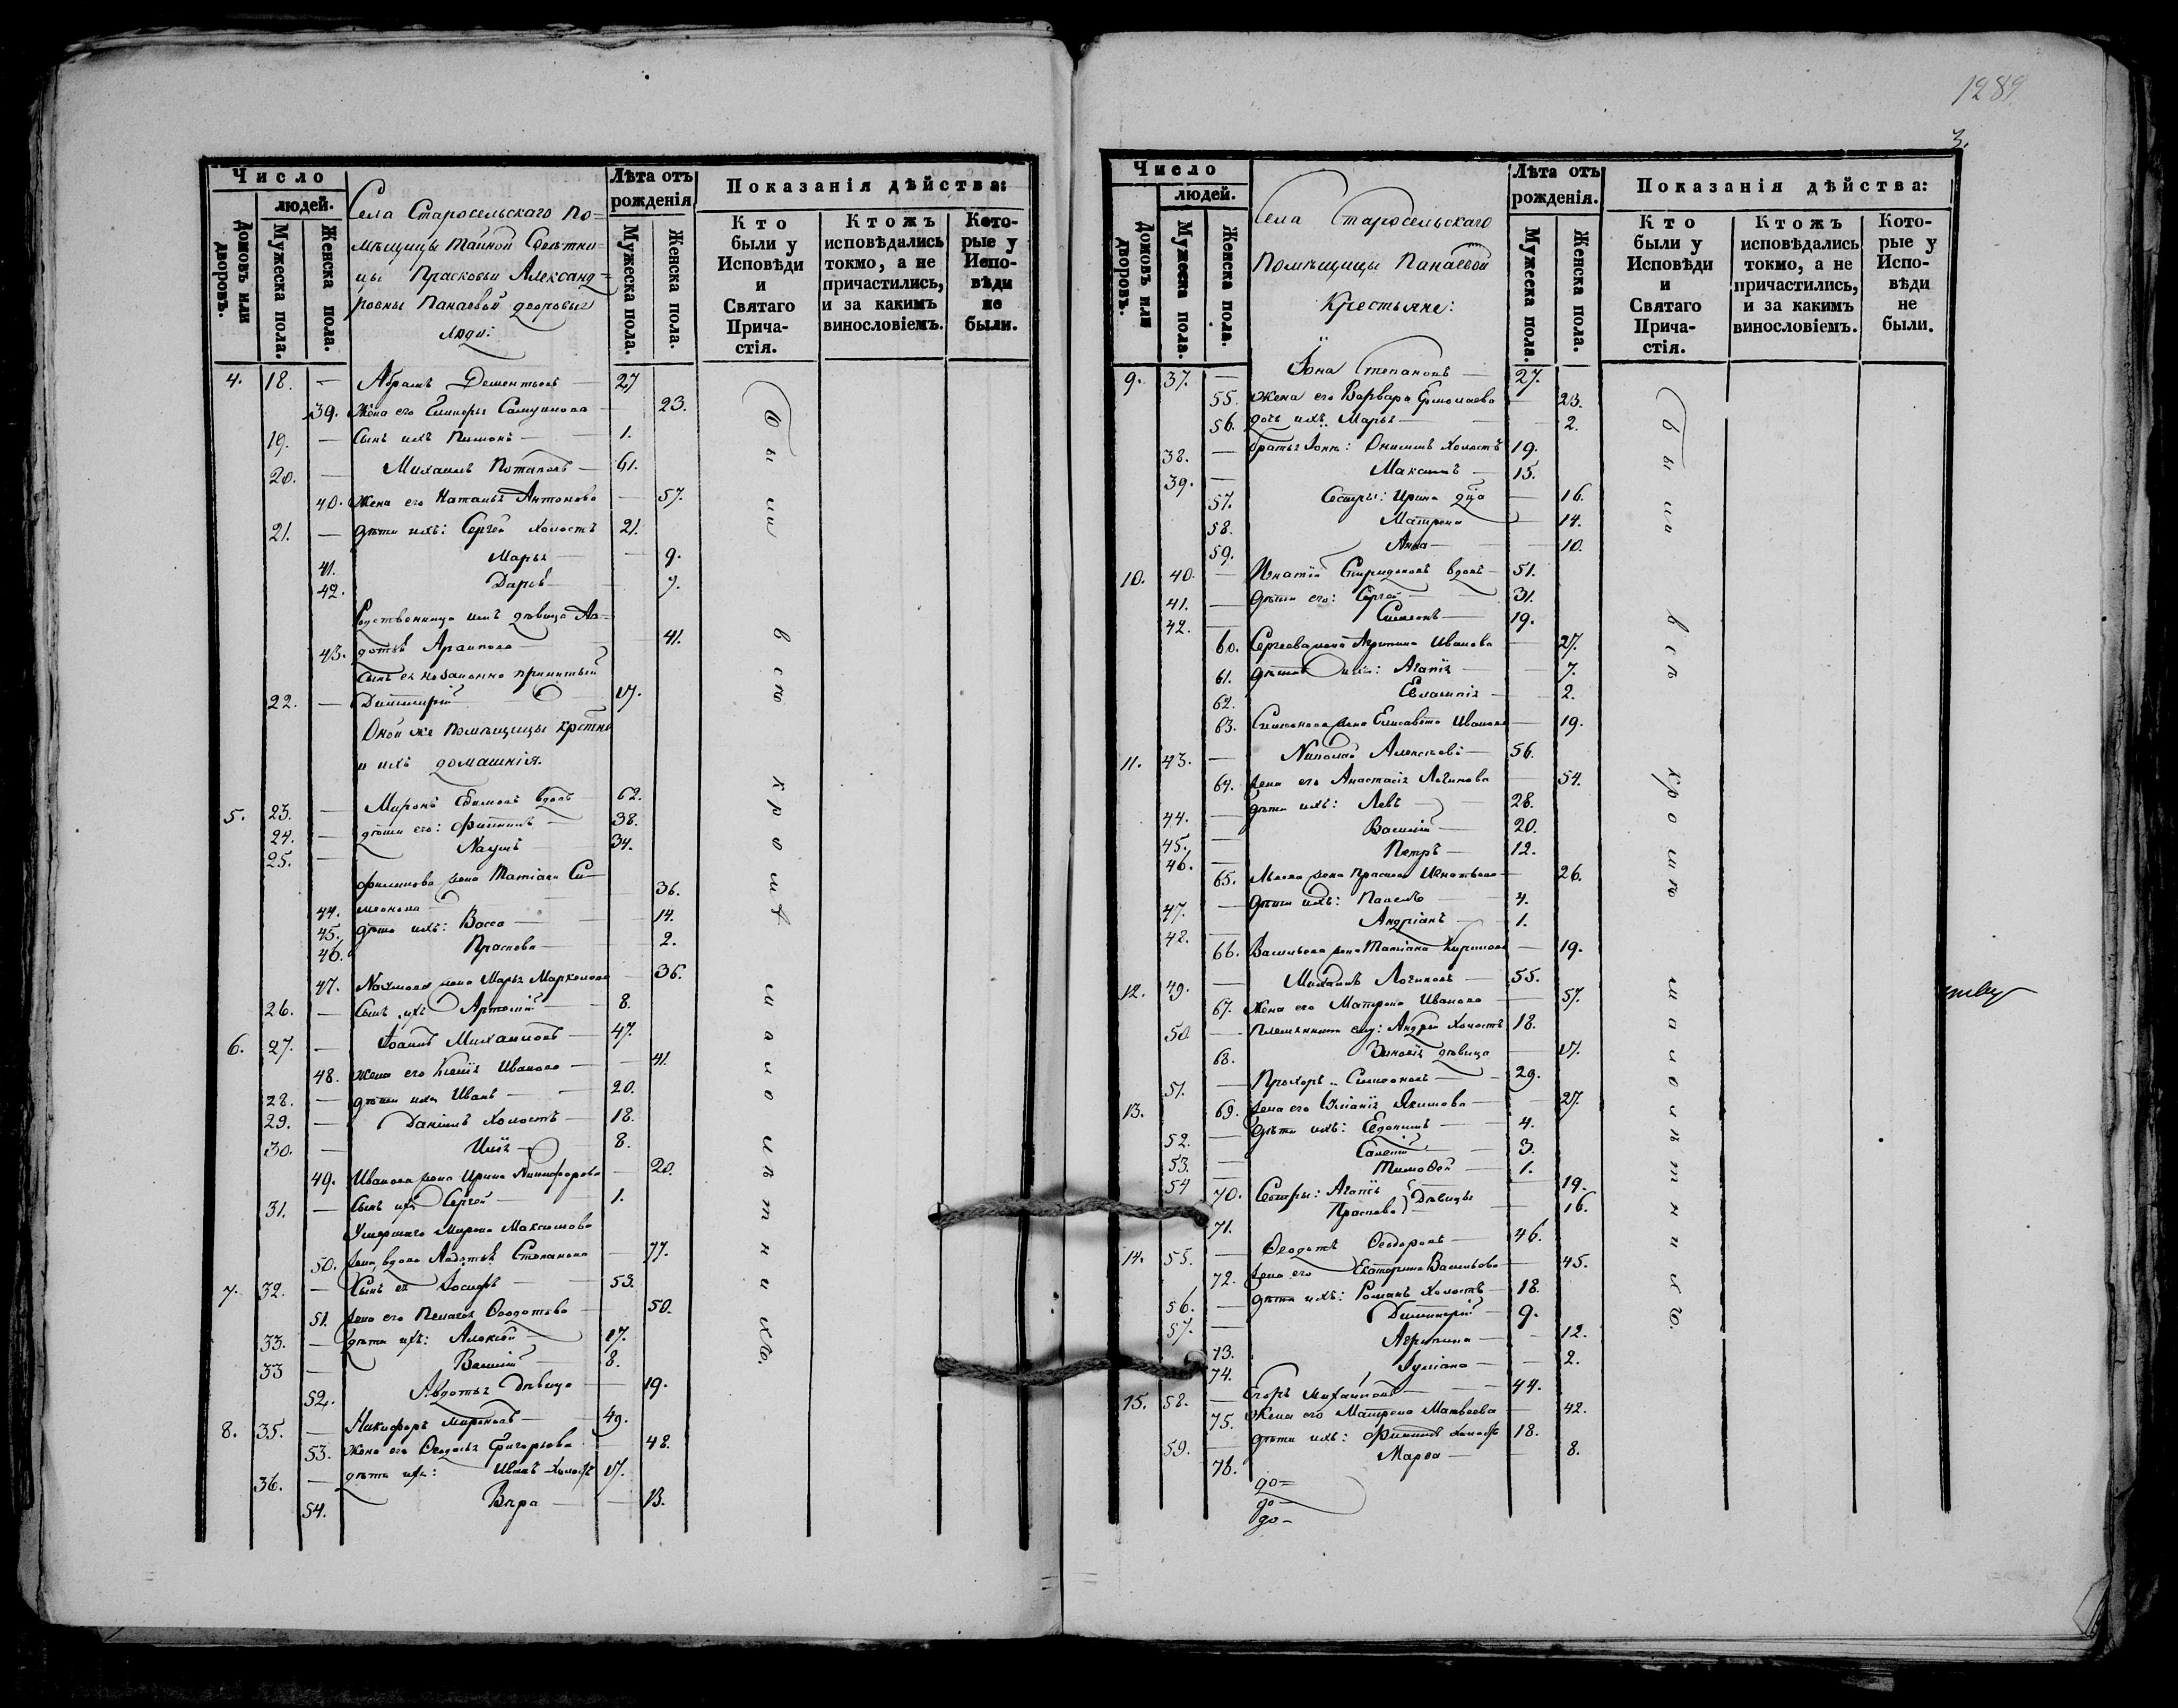 Число
людей.
Домовъ или дворовъ.
Мужеска пола.
Женска пола.
Села Старосельскаго По=
мѣщицы тайной Совѣтни=
цы Прасковьи Александ=
ровны Панаевой дворовые
люди:
Лѣта отъ рожденія
Мужеска пола.
Женска пола.
Показанія дѣйства:
Кто были у Исповѣди и Святаго Прича-стія.
Ктожъ исповѣдались токмо, а не причастились, и за какимъ винословіемъ.
Кото-рые у Испо-вѣди не были.
4. 18. — Абрамъ Дементьевъ — 27
39. Жена его Гликерья Самуилова — 23.
19. — Сынъ ихъ Пименъ — 1.
20. — Михаилъ Потаповъ — 61.
40. Жена его Наталья Антонова — 57.
21. — дѣти ихъ: Сергей холостъ 21.
41. Марья — 9.
42. Дарья — 7.
Родственница ихъ дѣвица Ав=
43. дотья — 41.
Сынъ ея незаконно прижитый
22. — Димитрий — 17.
Оной же помѣщицы крстне
и ихъ домашнія.
5. 23. — Миронъ вдовъ 62.
24. — дѣти его: Филиппъ — 38.
25. — Наумъ — 34.
Филипова жена Татіана Си=
44. меонова — 36.
45. дѣти ихъ: Васса — 14.
46. Прасковья — 2.
47. Наумова жена Марья Маркелова — 36.
26. — Сынъ ихъ Артемий — 8.
6. 27. — Іоаннъ Михаиловъ — 47.
48. жена его Ксенія Иванова — 41.
28. — дѣти ихъ Иванъ — 20.
29. — Даніилъ холостъ — 18.
30. — Илія — 8.
49. Иванова жена Ирина Никифорова — 20.
31. — Сынъ ихъ Сергей — 1.
Умершаго Мирона Максимова
50. жена, вдова Авдотья Степанова — 77.
7. 32. — Сынъ ея Іосифъ — 53.
51. жена его Пелагея Ѳеодотова — 50.
33. — дѣти ихъ: Алексей — 17.
33 — Василий — 8.
52. Авдотья дѣвица — 19.
8. 35. — Никифоръ Мироновъ — 49.
53. Жена его Ѳеодосья Григорьева — 48.
36. — дѣти ихъ: Иванъ холостъ 17.
54. Вѣра — 13.
были всѣ кромѣ малолѣтнихъ.
1289
3.
Число
людей.
Домовъ или дворовъ.
Мужеска пола.
Женска пола.
Села Старосельскаго
Помѣщицы Панаевой
Крестьяне:
Лѣта отъ рожденія.
Мужеска пола.
Женска пола.
Показанія дѣйства:
Кто были у Исповѣди и Святаго Прича-стія.
Ктожъ исповѣдались токмо, а не причастились, и за какимъ винословіемъ.
Кото-рые у Испо-вѣди не были.
9. 37. — Іона Степановъ — 27.
55. жена его Варвара Ермолаева — 23.
56. дочь ихъ Марья — 2.
38. — братья Іоны: Онисимъ холостъ 19.
39. — Максимъ — 15.
57. Сестры: Ирина дѣца — 16.
58. Матрена — 14.
59. Анна — 10.
10. 40. — Игнатій Спиридоновъ вдовъ — 51.
41. — Дѣти его: Сергей — 31.
42. — Симеонъ — 19.
60. Сергеева жена Агрипина Иванова — 27.
61. дѣти ихъ: Агапія — 7.
62. Евлампія — 2.
63. Симеонова жена Елисавета Иванова — 19.
11. 43. — Николай Алексѣевъ — 56.
64. жена его Анастасія Логинова — 54.
44. — дѣти ихъ: Левъ — 28.
45. — Василій — 20.
46. — Петръ — 12.
65. Львова жена Прасковья Игнатьева — 26.
47. — дѣти ихъ: Павелъ — 4.
48. Андріанъ — 1.
66. Васильева жена Татіана Кирилова — 19.
12. 49. — Михаилъ Логиновъ — 55.
67. Жена его Матрена Иванова — 57.
50 — Племянники ему: Андрей холостъ 18.
68. Зиновія дѣвица — 17.
51. — Прохоръ Симеоновъ — 29.
13. 69. жена его Іуліанія Якимова — 27.
52. — дѣти ихъ: Евдокимъ — 4.
53. — Савелій — 3.
54 — Тимоѳей — 1.
70. Сестры: Агапія } Дѣвицы — 19.
71. Прасковья — 16.
14. 55. — Ѳеодотъ Ѳеодоровъ — 46.
72. жена его Екатерина Васильева — 45.
56. — дѣти ихъ: Романъ холостъ — 18.
57. — Димитрій — 9.
73. Агрипина — 12.
74. Іуліана — 2.
15. 58. — Егоръ Михайловъ — 44.
75. Жена его Матрена Матвеева — 42.
59. — дѣти ихъ: Филиппъ холостъ 18.
76. Марѳа — 8.
до=
до—
до—
были всѣ кромѣ малолѣтнихъ.